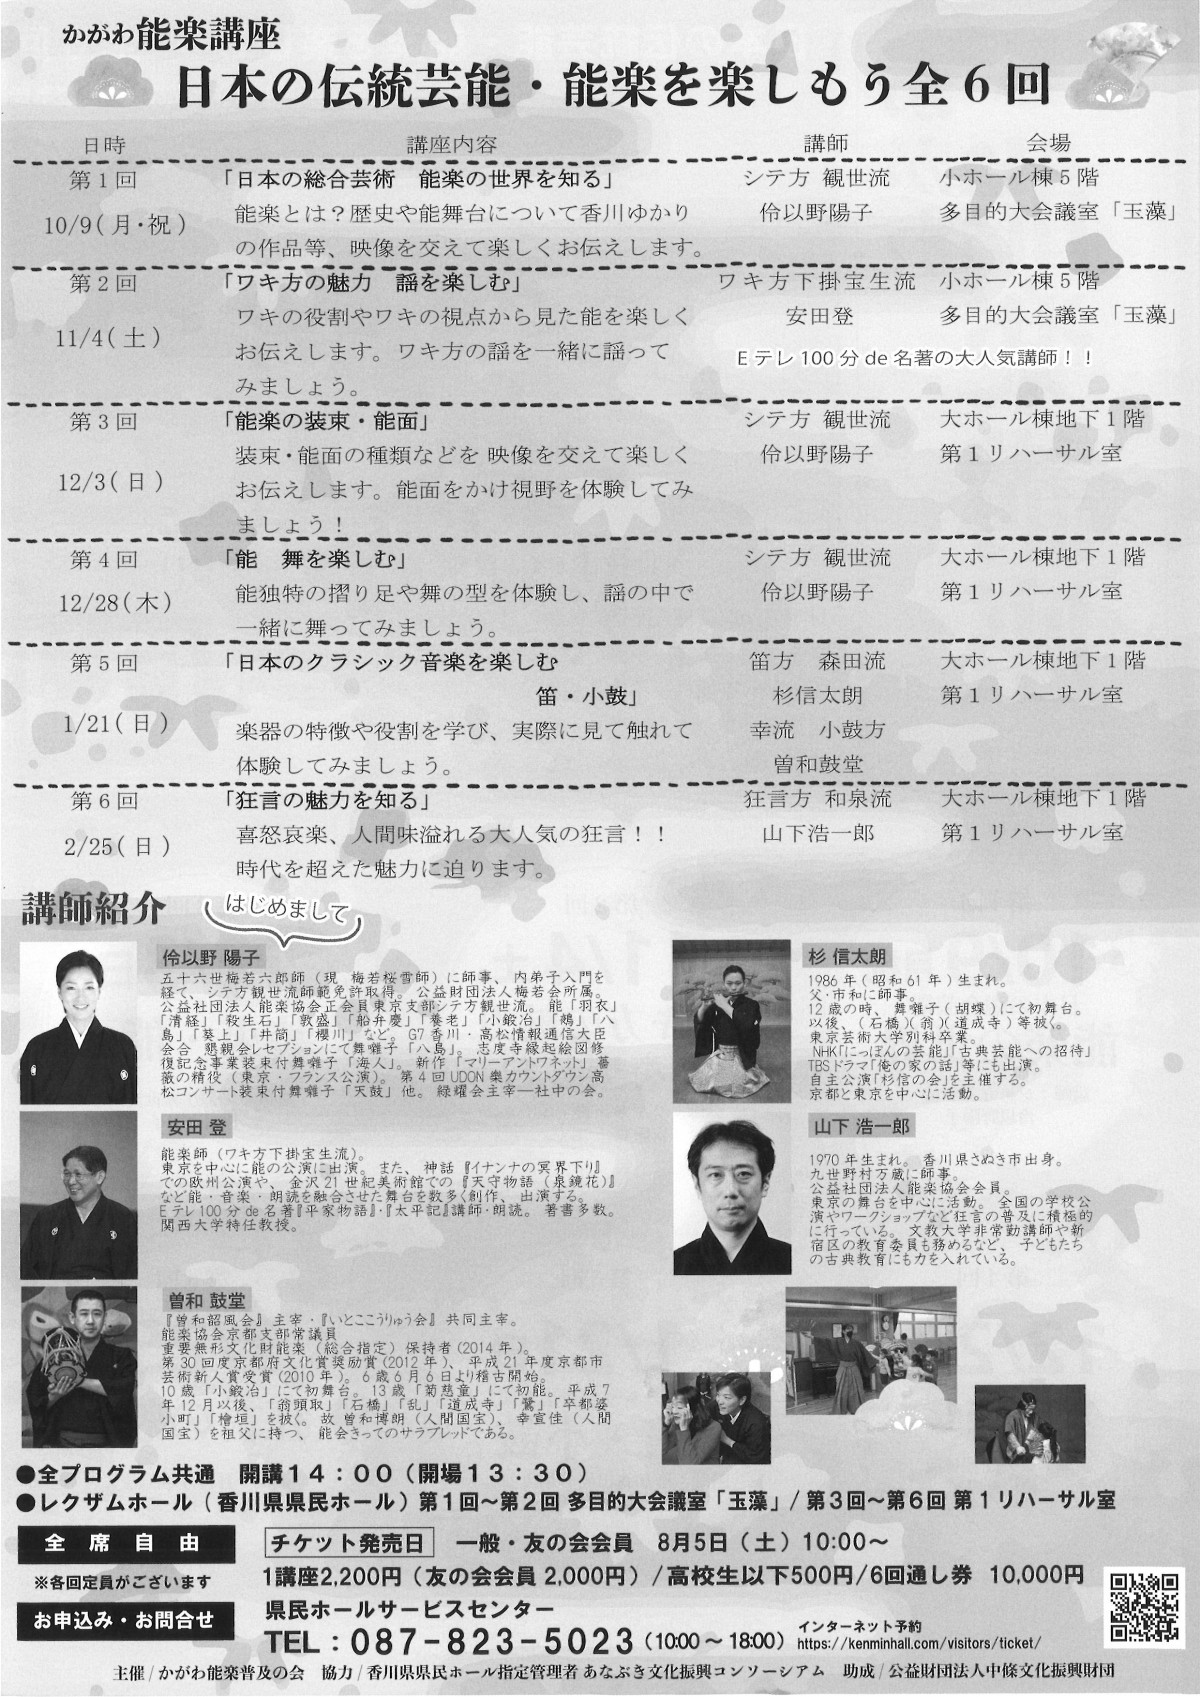 かがわ能楽講座
日本の伝統芸能・能楽を楽しもう全6回
日時 講座内容 講師 会場
第1回 「日本の総合芸術 能楽の世界を知る」 シテ方 観世流 小ホール棟5階
10/9(月・祝) 能楽とは？歴史や能舞台について香川ゆかり 伶以野陽子 多目的大会議室「玉藻」
の作品等、映像を交えて楽しくお伝えします。
第2回 「ワキ方の魅力 謡を楽しむ」 ワキ方下掛宝生流 小ホール棟5階
11/4(土) ワキの役割やワキの視点から見た能を楽しく 安田登 多目的大会議室「玉藻」
お伝えします。ワキ方の謡を一緒に謡って Eテレ100分de名著の大人気講師！！
みましょう。
第3回 「能楽の装束・能面」 シテ方 観世流 大ホール棟地下1階
12/3(日) 装束・能面の種類などを 映像を交えて楽しく 伶以野陽子 第1リハーサル室
お伝えします。能面をかけ視野を体験してみ
ましょう！
第4回 「能 舞を楽しむ」 シテ方 観世流 大ホール棟地下1階
12/28(木) 能独特の摺り足や舞の型を体験し、謡の中で 伶以野陽子 第1リハーサル室
一緒に舞ってみましょう。
第5回 「日本のクラシック音楽を楽しむ 笛方 森田流 大ホール棟地下1階
笛・小鼓」 杉信太朗 第1リハーサル室
1/21(日) 楽器の特徴や役割を学び、実際に見て触れて 幸流 小鼓方
体験してみましょう。 曽和鼓堂
第6回 「狂言の魅力を知る」 狂言方 和泉流 大ホール棟地下1階
2/25(日) 喜怒哀楽、人間味溢れる大人気の狂言！！ 山下浩一郎 第1リハーサル室
時代を超えた魅力に迫ります。
講師紹介 はじめまして
伶以野 陽子
五十六世梅若六郎師（現 梅若桜雪師）に師事、内弟子入門を
経て、シテ方観世流師範免許取得。公益財団法人梅若会所属。
公益社団法人能楽協会正会員東京支部シテ方観世流。能「羽衣」
「清経」「殺生石」「敦盛」「船弁慶」「養老」「小鍛冶」「鵺」「八
島」「葵上」「井筒」「櫻川」など。G7香川・高松情報通信大臣
会合 懇親会レセプションにて舞囃子「八島」。志度寺縁起絵図修
復記念事業装束付舞囃子「海人」。新作「マリーアントワネット」薔
薇の精役（東京・フランス公演）。第4回UDON楽カウントダウン高
松コンサート装束付舞囃子「天鼓」他。緑耀会主宰―社中の会。
杉 信太朗
1986年(昭和61年)生まれ。
父・市和に師事。
12歳の時、舞囃子(胡蝶)にて初舞台。
以後、(石橋)(翁)(道成寺)等披く。
東京芸術大学別科卒業。
NHK「にっぽんの芸能」「古典芸能への招待」
TBSドラマ「俺の家の話」等にも出演。
自主公演「杉信の会」を主催する。
京都と東京を中心に活動。
安田 登
能楽師（ワキ方下掛宝生流）。
東京を中心に能の公演に出演。また、神話『イナンナの冥界下り』
での欧州公演や、金沢21世紀美術館での『天守物語（泉鏡花）』
など能・音楽・朗読を融合させた舞台を数多く創作、出演する。
Eテレ100分de名著『平家物語』・『太平記』講師・朗読。著書多数。
関西大学特任教授。
山下 浩一郎
1970年生まれ。香川県さぬき市出身。
九世野村万蔵に師事。
公益社団法人能楽協会会員。
東京の舞台を中心に活動。全国の学校公
演やワークショップなど狂言の普及に積極的
に行っている。文教大学非常勤講師や新
宿区の教育委員も務めるなど、子どもたち
の古典教育にも力を入れている。
曽和 鼓堂
『曽和韶風会』主宰・『いとこごうりゅう会』共同主宰。
能楽協会京都支部常議員
重要無形文化財能楽（総合指定）保持者(2014年)。
第30回度京都府文化賞奨励賞(2012年)、平成21年度京都市
芸術新人賞受賞(2010年)。6歳6月6日より稽古開始。
10歳「小鍛冶」にて初舞台。13歳「菊慈童」にて初能。平成7
年12月以後、「翁頭取」「石橋」「乱」「道成寺」「鷺」「卒都婆
小町」「檜垣」を披く。故 曽和博朗（人間国宝）、幸宣佳（人間
国宝）を祖父に持つ、能会きってのサラブレッドである。
●全プログラム共通 開講14：00（開場13：30）
●レクザムホール（香川県県民ホール）第1回～第2回 多目的大会議室「玉藻」/第3回～第6回 第1リハーサル室
全席自由 チケット発売日 一般・友の会会員 8月5日（土）10:00～
※各回定員がございます 1講座2,200円（友の会会員2,000円）/高校生以下500円/6回通し券 10,000円
お申込み・お問合せ 県民ホールサービスセンター
TEL：087-823-5023（10:00～18:00） インターネット予約
https://kenminhall.com/visitors/ticket/
主催/かがわ能楽普及の会 協力/香川県県民ホール指定管理者 あなぶき文化振興コンソーシアム 助成/公益財団法人中條文化振興財団